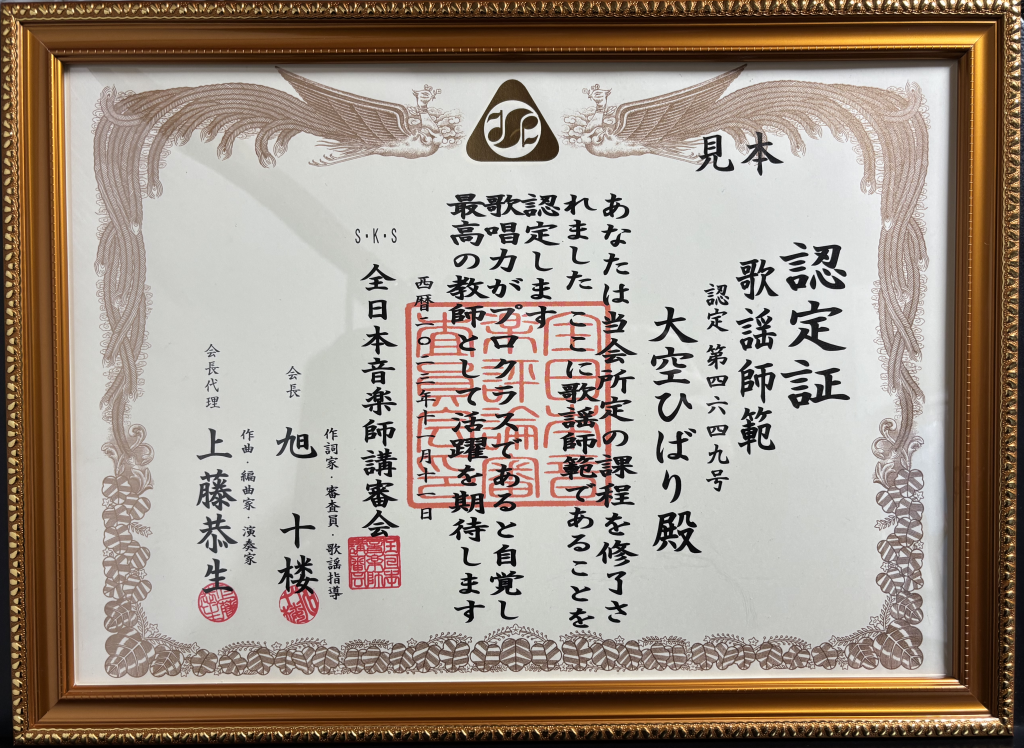 見本
認定証
歌謡師範
認定 第四六四九号
大空ひばり殿
あなたは当会所定の課程を修了さ
れました ここに歌謡師範であることを
認定します
歌唱力がプロクラスであると自覚し
最高の教師として活躍を期待します
西暦二〇二三年十一月十一日
S・K・S
全日本音楽師講審会
作詞家・審査員・歌謡指導
会長 旭 十楼
作曲・編曲家・演奏家
会長代理 上藤恭生